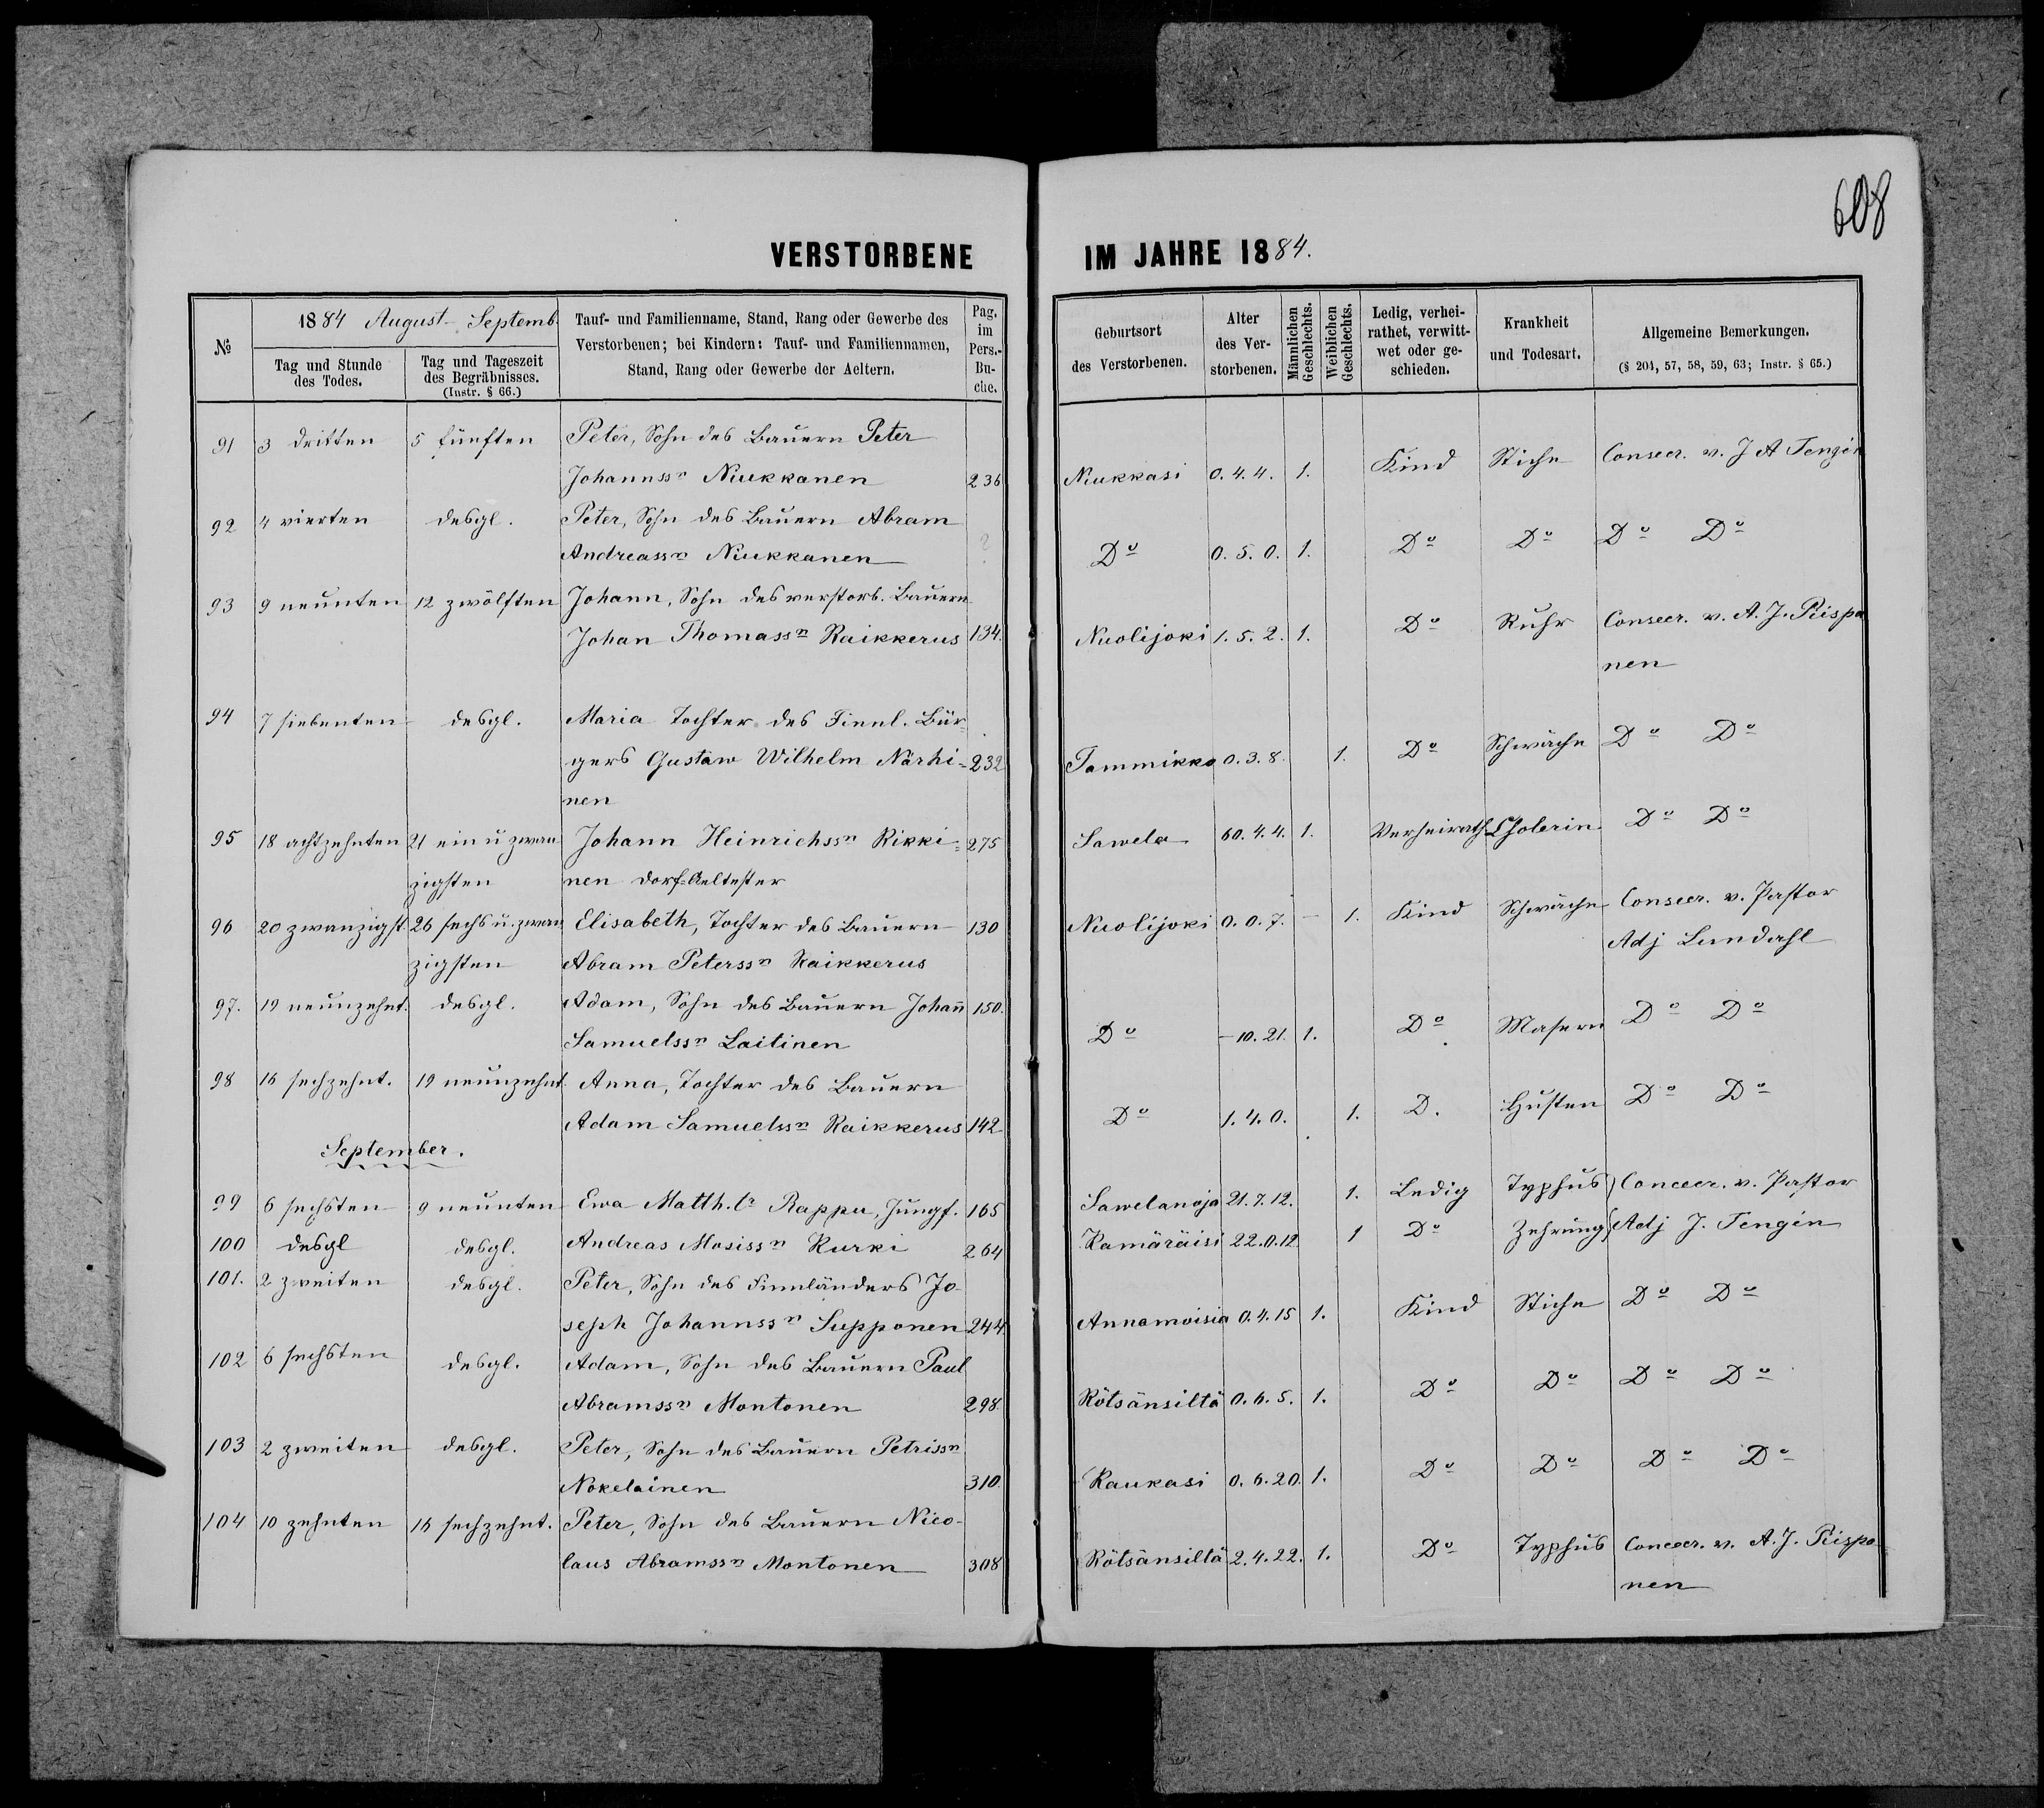 608
VERSTORBENE IM JAHRE 1884.
№
1884 August-Septemb.
Tag und Stunde des Todes.
Tag und Tageszeit des Begräbnisses. (Instr. § 66.)
Tauf- und Familienname, Stand, Rang oder Gewerbe des
Verstorbenen; bei Kindern: Tauf- und Familiennamen,
Stand, Rang oder Gewerbe der Aeltern.
Pag. im Pers.-Bu-che.
Geburtsort des Verstorbenen.
Alter des Ver-storbenen.
Männlichen Geschlechts.
Weiblichen Geschlechts.
Ledig, verhei-rathet, verwitt-wet oder ge-schieden.
Krankheit und Todesart.
Allgemeine Bemerkungen.
(§ 201, 57, 58, 59, 63; Instr. § 65.)
91 3 dritten 5 fünften Peter, Sohn des Bauern Peter
Johannssn Niukkanen 236 Niukkasi 0. 4. 4. 1. Kind Stiche Consecr. v. J A Tengén
92 4 vierten desgl. Peter, Sohn des Bauern Abram
Andreassn Niukkanen ? Do 0. 5. 0. 1. Do Do Do Do
93 9 neunten 12 zwölften Johann, Sohn des verstorb. Bauern
Johan Thomassn Raikkerus 134. Nuolijoki 1. 5. 2. 1. Do Ruhr Consecr. v. A. J. Piispa
nen
94 7 siebenten desgl. Maria Tochter des Finnl. Bür-
gers Gustaw Wilhelm Närhi- 232 Tammikko 0. 3. 8. 1. Do Schwäche Do Do
nen
95 18 achtzehnten 21 ein u zwan Johann Heinrichssn Rikki- 275 Sawela 60. 4. 4. 1. Verheirath. Cholerin Do Do
zigsten nen Dorf-Aeltester
96 20 zwanzigst. 26 sechs u. zwan Elisabeth, Tochter des Bauern 130 Nuolijoki 0. 0. 7. - 1. Kind Schwäche Consecr. v. Pastor
zigsten Abram Peterssn Raikkerus Adj Lundahl
97. 19 neunzehnt. desgl. Adam, Sohn des Bauern Johann 150.
Samuelssn Laitinen Do -10. 21. 1. Do Masern Do Do
98 16 sechzehnt. 19 neunzehnt Anna, Tochter des Bauern
Adam Samuelssn Raikkerus 142 Do 1. 4. 0. 1. D. Husten Do Do
September.
99 6 sechsten 9 neunten Ewa Matth. tr Rappu, Jungf. 165 Sawelanoja 21. 7. 12. 1. Ledig Typhus Concecr. v. Pastor
100 desgl desgl. Andreas Mosissn Kurki 264 Kamäräisi 22. 0. 12 1 Do Zehrung Adj J. Tengén
101. 2 zweiten desgl. Peter, Sohn des Finnländers Jo-
seph Johannssn Supponen 244 Annamoisia 0. 4. 15 1. Kind Stiche Do Do
102 6 sechsten desgl. Adam, Sohn des Bauern Paul
Abramssn Montonen 298. Rötsänsiltä 0. 6. 5. 1. Do Do Do Do
103 2 zweiten desgl. Peter, Sohn des Bauern Petrissn
Nokelainen 310. Raukasi 0. 6. 20. 1. Do Do Do Do
104 10 zehnten 16 sechzehnt. Peter, Sohn des Bauern Nico-
laus Abramssn Montonen 308 Rötsänsiltä 2. 4. 22. 1. Do Typhus Concecr. v. A. J. Piispa
nen